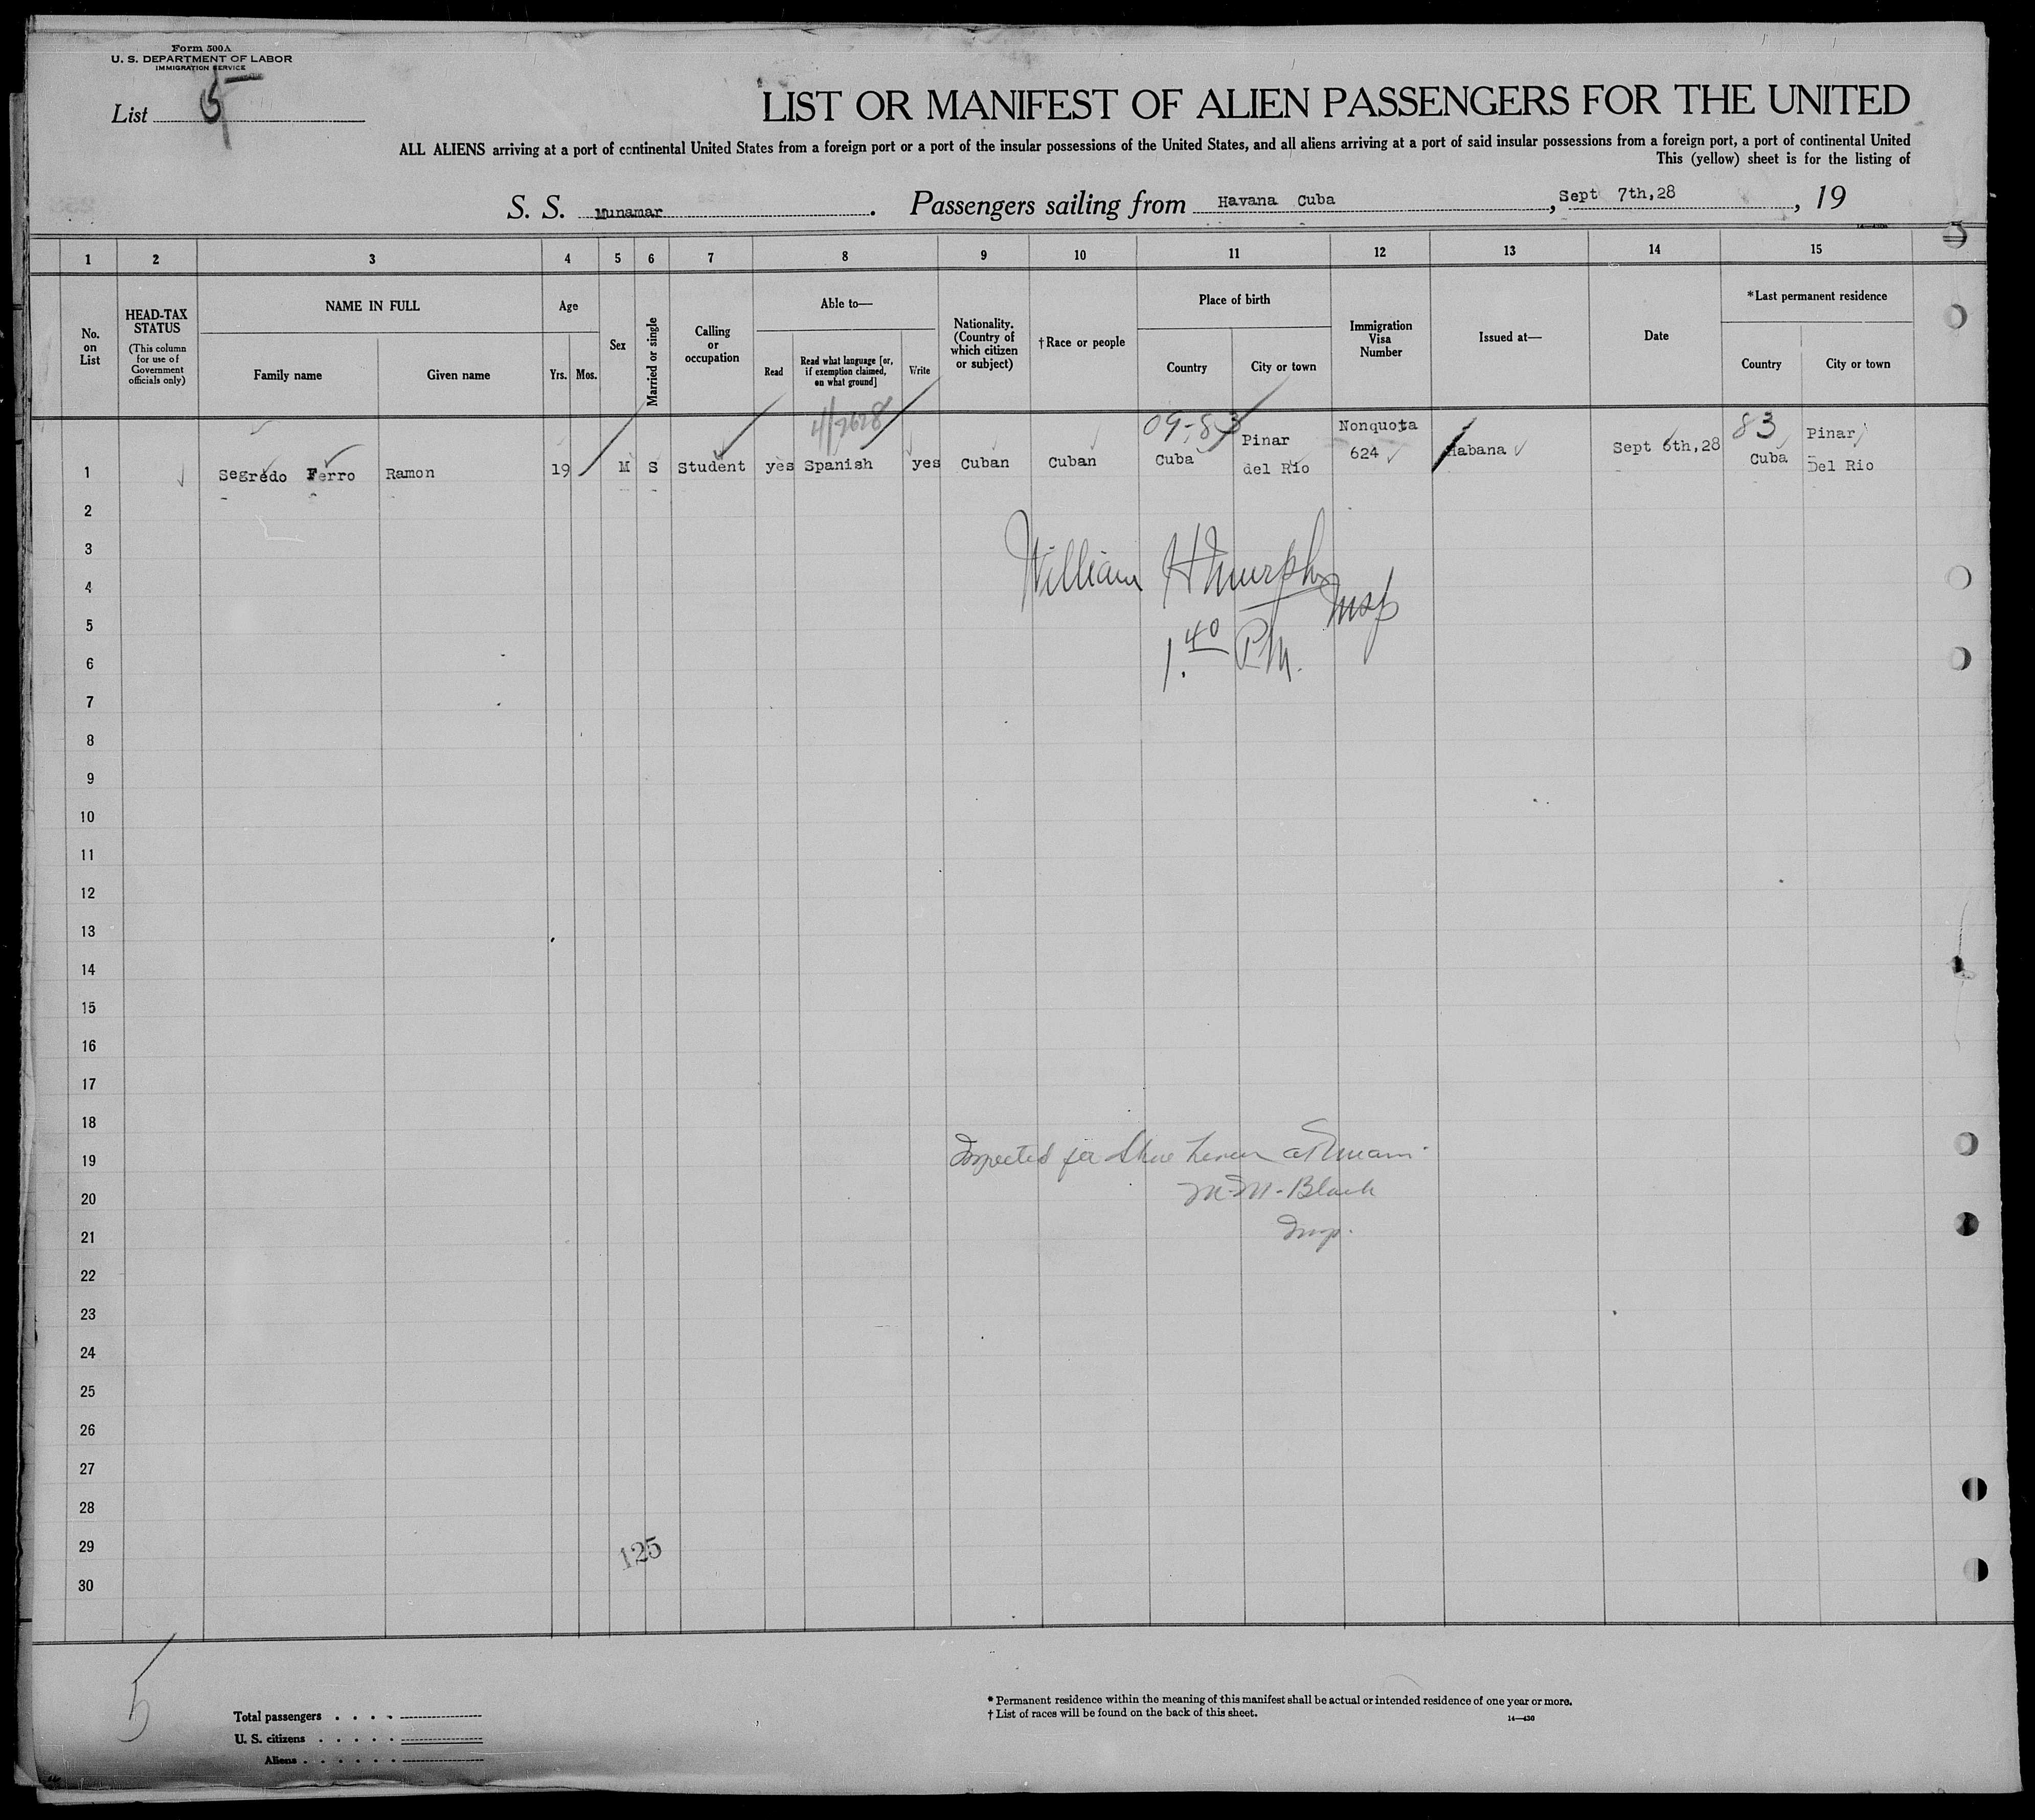 Form 500A
U. S. DEPARTMENT OF LABOR
IMMIGRATION SERVICE
List 5
LIST OR MANIFEST OF ALIEN PASSENGERS FOR THE UNITED
ALL ALIENS arriving at a port of continental United States from a foreign port or a port of the insular possessions of the United States, and all aliens arriving at a port of said insular possessions from a foreign port, a port of continental United
This (yellow) sheet is for the listing of
S. S. Munamar. Passengers sailing from Havana Cuba, Sept 7th,28, 19
1 2 3 4 5 6 7 8 9 10 11 12 13 14 15
No. on List
HEAD-TAX STATUS
(This column for use of Government officials only)
NAME IN FULL
Family name
Given name
Age
Yrs.
Mos.
Sex
Married or single
Calling or occupation
Able to—
Read
Read what language [or, if exemption claimed, on what ground]
Write
Nationality. (Country of which citizen or subject)
†Race or people
Place of birth
Country
City or town
Immigration Visa Number
Issued at—
Date
*Last permanent residence
Country
City or town
09-83
Nonquota
83
Pinar
Pinar
1 Segredo Ferro Ramon 19 M S Student yes Spanish yes Cuban Cuban Cuba del Rio 624 Habana Sept 6th,28 Cuba Del Rio
2
3
William H Murphy
4
Insp
5
1.40 P.M.
6
7
8
9
10
11
12
13
14
15
16
17
18
19
Inspected for at Miami
20
M. M. Black
21
Insp.
22
23
24
25
26
27
28
29
125
30
5
Total passengers . . . .
U. S. citizens . . . . .
Aliens . . . . . .
* Permanent residence within the meaning of this manifest shall be actual or intended residence of one year or more.
† List of races will be found on the back of this sheet.
14—430